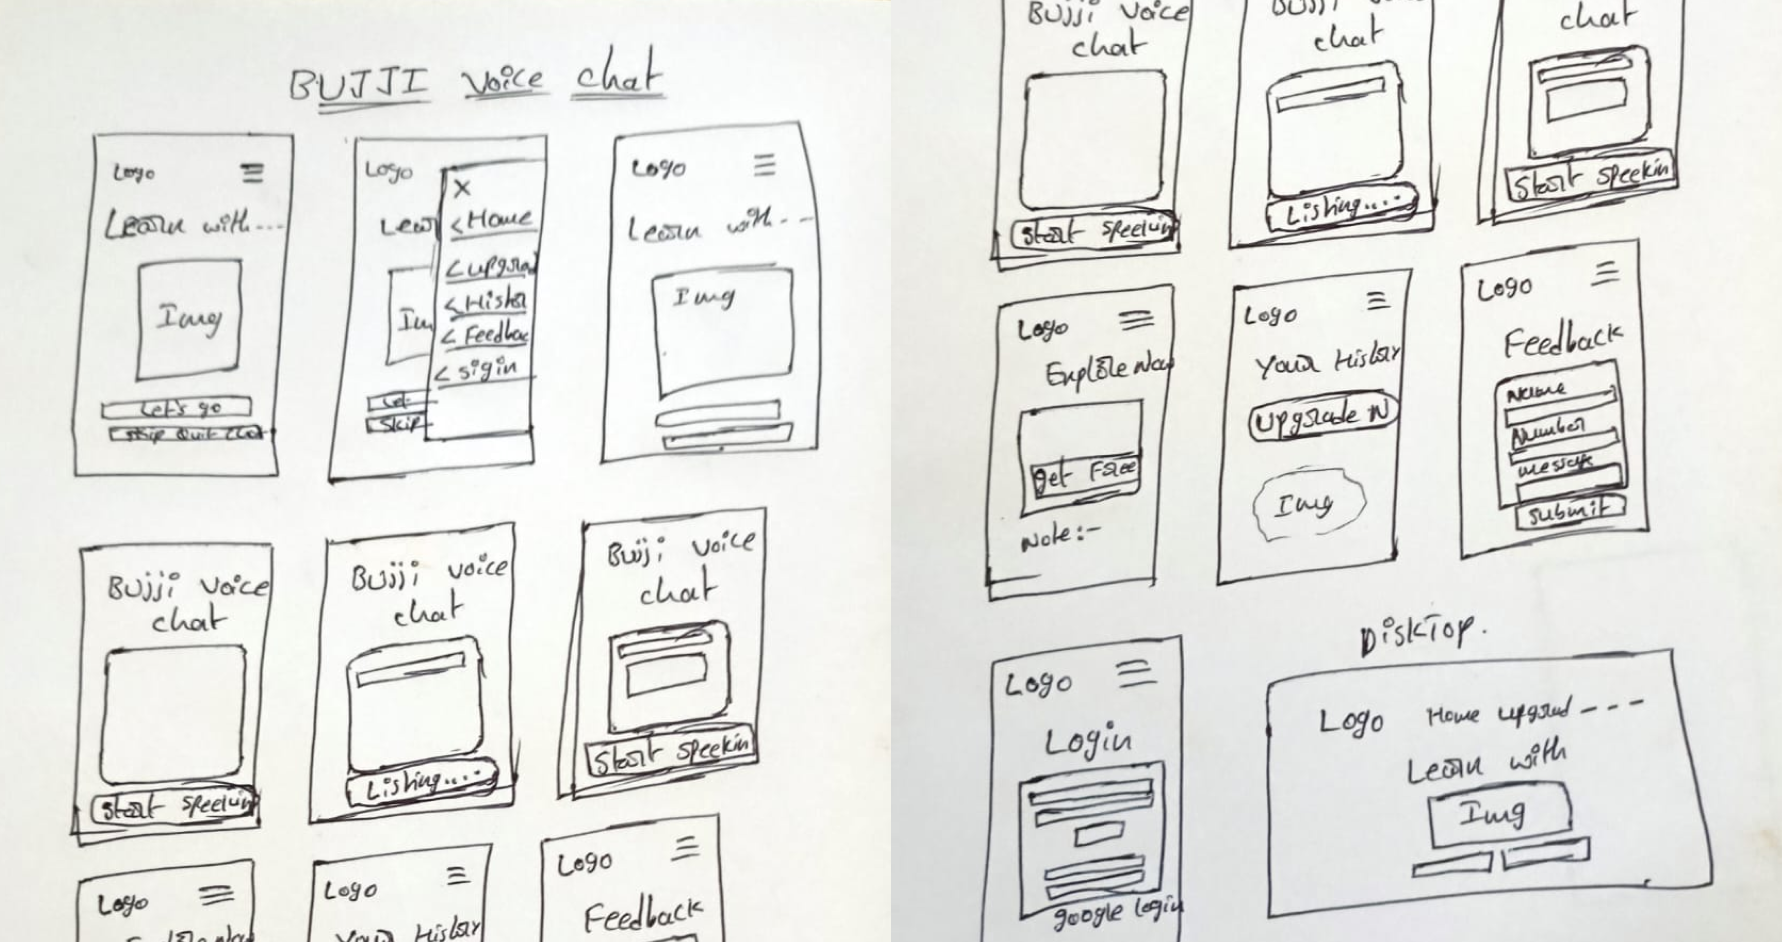 BUJJI Voice chat
Logo
Learn with---
Img
Let's go
Skip Quit Chat
Logo
X
Lear
< Home
< upgrad
Im
< Histor
< Feedbac
< sigin
Let
Skip
Logo
Learn with--
Img
Bujji Voice
chat
Start Speeking
Bujji Voice
chat
Listing....
Bujji Voice
chat
Start Speekin
Logo
Logo
Your History
Logo
Feedback
Bujji Voice
chat
Start Speeking
Bujji Voice
chat
Listing....
chat
Start Speekin
Logo
Explore Now
get Free
Note:-
Logo
Your History
Upgrade N
Img
Logo
Feedback
Name
Number
Message
Submit
Logo
Login
google login
DiskTop.
Logo Home upgrad ---
Learn with
Img